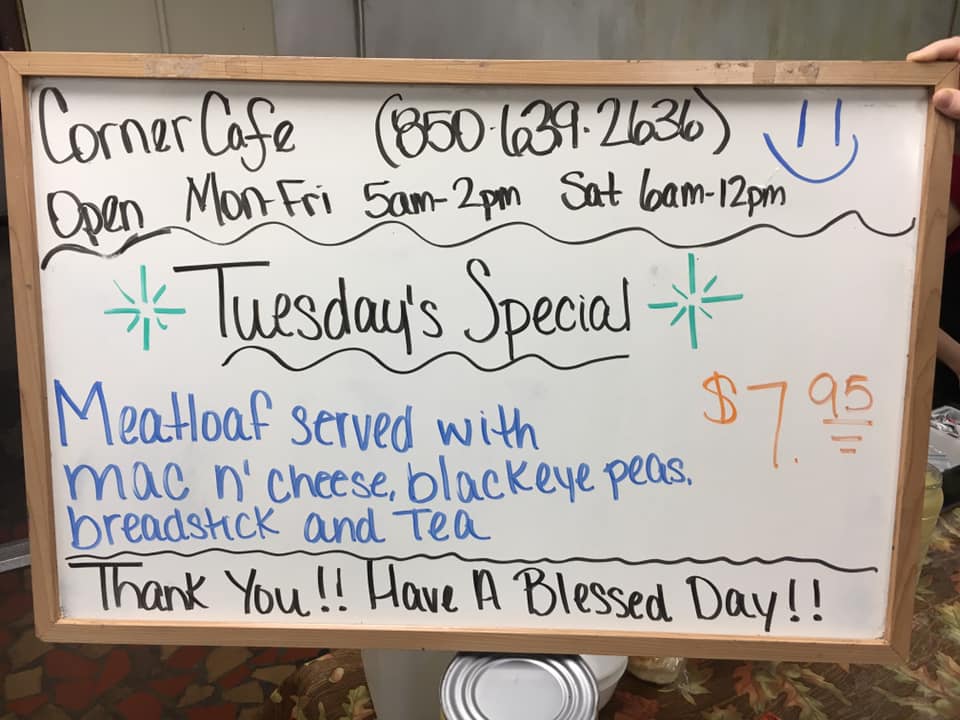 Corner Cafe (850-639-2636)
Open Mon-Fri 5am-2pm Sat 6am-12pm
Tuesday's Special
Meatloaf served with
$7.95
mac n' cheese, blackeye peas,
breadstick and Tea
Thank You!! Have A Blessed Day!!